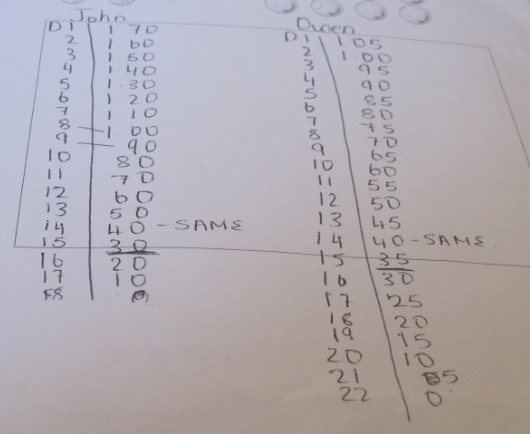 John
D1 170
2 160
3 150
4 140
5 130
6 120
7 110
8 100
9 90
10 80
11 70
12 60
13 50
14 40 - SAME
15 30
16 20
17 10
18 0
Owen
D1 105
2 100
3 95
4 90
5 85
6 80
7 75
8 70
9 65
10 60
11 55
12 50
13 45
14 40 - SAME
15 35
16 30
17 25
18 20
19 15
20 10
21 5
22 0